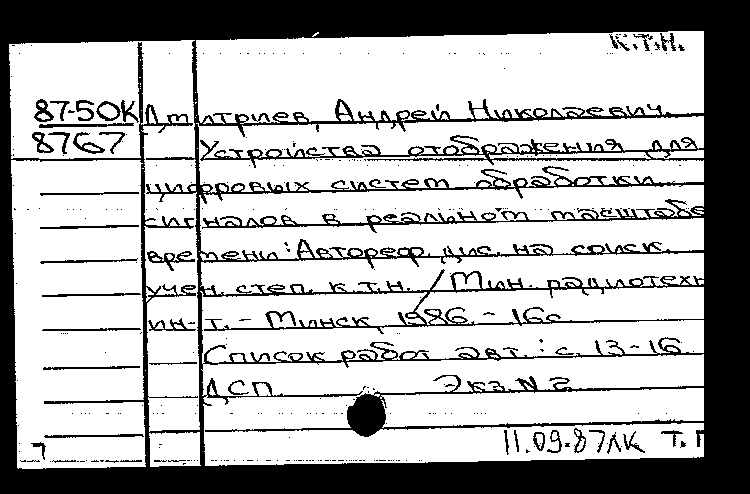 К.Т.Н.
87-50К Дмитриев, Андрей Николаевич.
8767 Устройства отображения для
цифровых систем обработки
сигналов в реальном масштабе
времени: Автореф. дис. на соиск.
учен. степ. к.т.н. / Мин. радиотехн
ин-т. - Минск, 1986. - 16с
Список работ авт.: с. 13-16
ДСП. Экз. N 2
7 11.09.87ЛК Т.